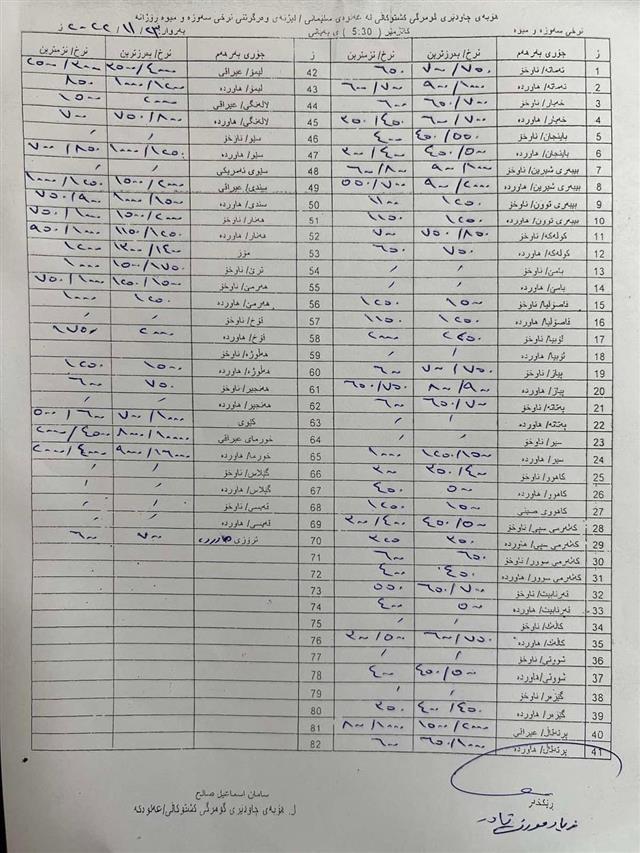 هۆبەی چاودێری گومرگی کشتوکاڵی لە عەلوەی سلێمانی / لیژنەی وەرگرتنی نرخی سەوزە و میوە ڕۆژانە
نرخی سەوزە و میوە کاتژمێر ( 5:30 ) ی بەیانی بەروار ٢٠٢٢/١١/٢٣ ز
ز جۆری بەرهەم نرخ/ بەرزترین نرخ/ نزمترین ز جۆری بەرهەم نرخ/ بەرزترین نرخ/ نزمترین
1 تەماتە/ ناوخۆ ٧٠٠/٧٥٠ ٦٥٠ 42 لیمۆ/ عیراقی ٣٥٠٠/٤٠٠٠ ٢٥٠٠/٣٠٠٠
2 تەماتە/ هاوردە ٩٠٠/١٠٠٠ ٦٠٠/٧٠٠ 43 لیمۆ/ هاوردە ١٠٠٠/١٢٠٠ ٨٥٠
3 خەیار/ ناوخۆ ٦٥٠/٧٠٠ ٦٠٠ 44 لالەنگی/ عیراقی ٢٠٠٠ ١٥٠٠
4 خەیار/ هاوردە ٦٠٠/٧٠٠ ٣٥٠/٤٥٠ 45 لالەنگی/ هاوردە ٧٥٠/٨٠٠ ٧٠٠
5 باینجان/ ناوخۆ ٤٥٠/٥٥٠ ٤٠٠ 46 سێو/ ناوخۆ / /
6 باینجان/ هاوردە ٤٥٠/٥٠٠ ٣٠٠/٤٠٠ 47 سێو/ هاوردە ١٠٠٠/١٢٥٠ ٧٥٠/٨٥٠
7 بیبەری شیرین/ ناوخۆ ٩٠٠/١٠٠٠ ٦٠٠/٨٠٠ 48 سێوی ئەمریکی / /
8 بیبەری شیرین/ هاوردە ٩٠٠/٢٠٠٠ ٥٥٠/٧٠٠ 49 سندی/ عیراقی ١٥٠٠/٢٠٠٠ ١٠٠٠/١٢٥٠
9 بیبەری توون/ ناوخۆ ١٢٥٠ ١١٠٠ 50 سندی/ هاوردە ١٠٠٠/١٥٠٠ ٧٥٠/٩٠٠
10 بیبەری توون/ هاوردە ١٢٥٠ ١١٥٠ 51 هەنار/ ناوخۆ ١٥٠٠/٢٠٠٠ ٧٥٠/١٠٠٠
11 کولەکە/ ناوخۆ ٧٥٠/٨٥٠ ٧٠٠ 52 هەنار/ هاوردە ١١٥٠/١٢٥٠ ٩٥٠/١٠٠٠
12 کولەکە/ هاوردە ٧٥٠ ٦٥٠ 53 مۆز ١٣٠٠/١٤٠٠ ١٢٠٠
13 بامێ/ ناوخۆ / / 54 ترێ/ ناوخۆ ١٥٠٠/١٧٥٠ ١٠٠٠
14 بامێ/ هاوردە / / 55 هەرمێ/ ناوخۆ ١٢٥٠/١٥٠٠ ٧٥٠/١٠٠٠
15 فاصۆلیا/ ناوخۆ ١٥٠٠ ١٢٥٠ 56 هەرمێ/ هاوردە ١٢٥٠ ١٠٠٠
16 فاصۆلیا/ هاوردە ١٢٥٠ ١١٥٠ 57 قۆخ/ ناوخۆ / /
17 لۆبیا/ ناوخۆ ٢٢٥٠ ٢٠٠٠ 58 قۆخ/ هاوردە ٢٠٠٠ ١٧٥٠
18 لۆبیا/ هاوردە / / 59 هەلوژە/ناوخۆ
19 پیاز/ ناوخۆ ٧٠٠/٧٥٠ ٦٠٠ 60 هەلوژە/ هاوردە ١٥٠٠ ١٢٥٠
20 پیاز/ هاوردە ٨٠٠/٩٠٠ ٦٥٠/٧٥٠ 61 هەنجیر/ ناوخۆ ٧٥٠ ٦٠٠
21 پەتاتە/ ناوخۆ ٦٥٠/٧٠٠ ٦٠٠ 62 هەنجیر/ هاوردە
22 پەتاتە/ هاوردە / / 63 کێوی ٧٠٠/١٠٠٠ ٥٠٠/٦٠٠
23 سیر/ ناوخۆ / / 64 خورمای عیراقی
24 سیر/ هاوردە ١٢٥٠/١٥٠٠ ١٠٠٠ 65 خورما/ هاوردە ٢٠٠٠/٤٠٠٠
25 کاهوو/ ناوخۆ ٣٥٠/٤٠٠ ٣٠٠ 66 گێلاس/ ناوخۆ / /
26 کاهوو/ هاوردە ٥٠٠ ٤٥٠ 67 گێلاس/ هاوردە / /
27 کاهووی صینی ١٥٠٠ ١٢٥٠ 68 قەیسی/ ناوخۆ / /
28 کەلەرمی سپی/ ناوخۆ ٤٥٠/٥٠٠ ٣٠٠/٤٠٠ 69 قەیسی/ هاوردە / /
29 کەلەرمی سپی/ هاوردە ٣٥٠ ٣٢٥ 70 تروزی هاوردە ٧٠٠ ٦٠٠
30 کەلەرمی سوور/ ناوخۆ ٦٥٠ ٦٠٠ 71
31 کەلەرمی سوور/ هاوردە ٤٥٠ ٤٠٠ 72
32 قەرنابیت/ ناوخۆ ٦٥٠/٧٠٠ ٥٥٠ 73
33 قەرنابیت/ هاوردە ٥٠٠ ٤٠٠ 74
34 کاڵەک/ ناوخۆ / / 75
35 کاڵەک/ هاوردە ٦٠٠/٧٥٠ ٣٠٠/٥٠٠ 76
36 شووتی/ ناوخۆ / / 77
37 شووتی/هاوردە ٤٥٠/٥٠٠ ٤٠٠ 78
38 گێزەر/ ناوخۆ / / 79
39 گێزەر/ هاوردە ٤٠٠/٤٥٠ ٣٥٠ 80
40 پرتەقاڵ/ عیراقی ١٥٠٠/٢٠٠٠ ٨٠٠/١٠٠٠ 81
41 پرتەقاڵ/ هاوردە ٦٥٠/١٠٠٠ ٦٠٠ 82
ڕێکخەر
سامان اسماعیل صالح
ل. هۆبەی چاودێری گومرگی کشتوکاڵی/عەلوەکە